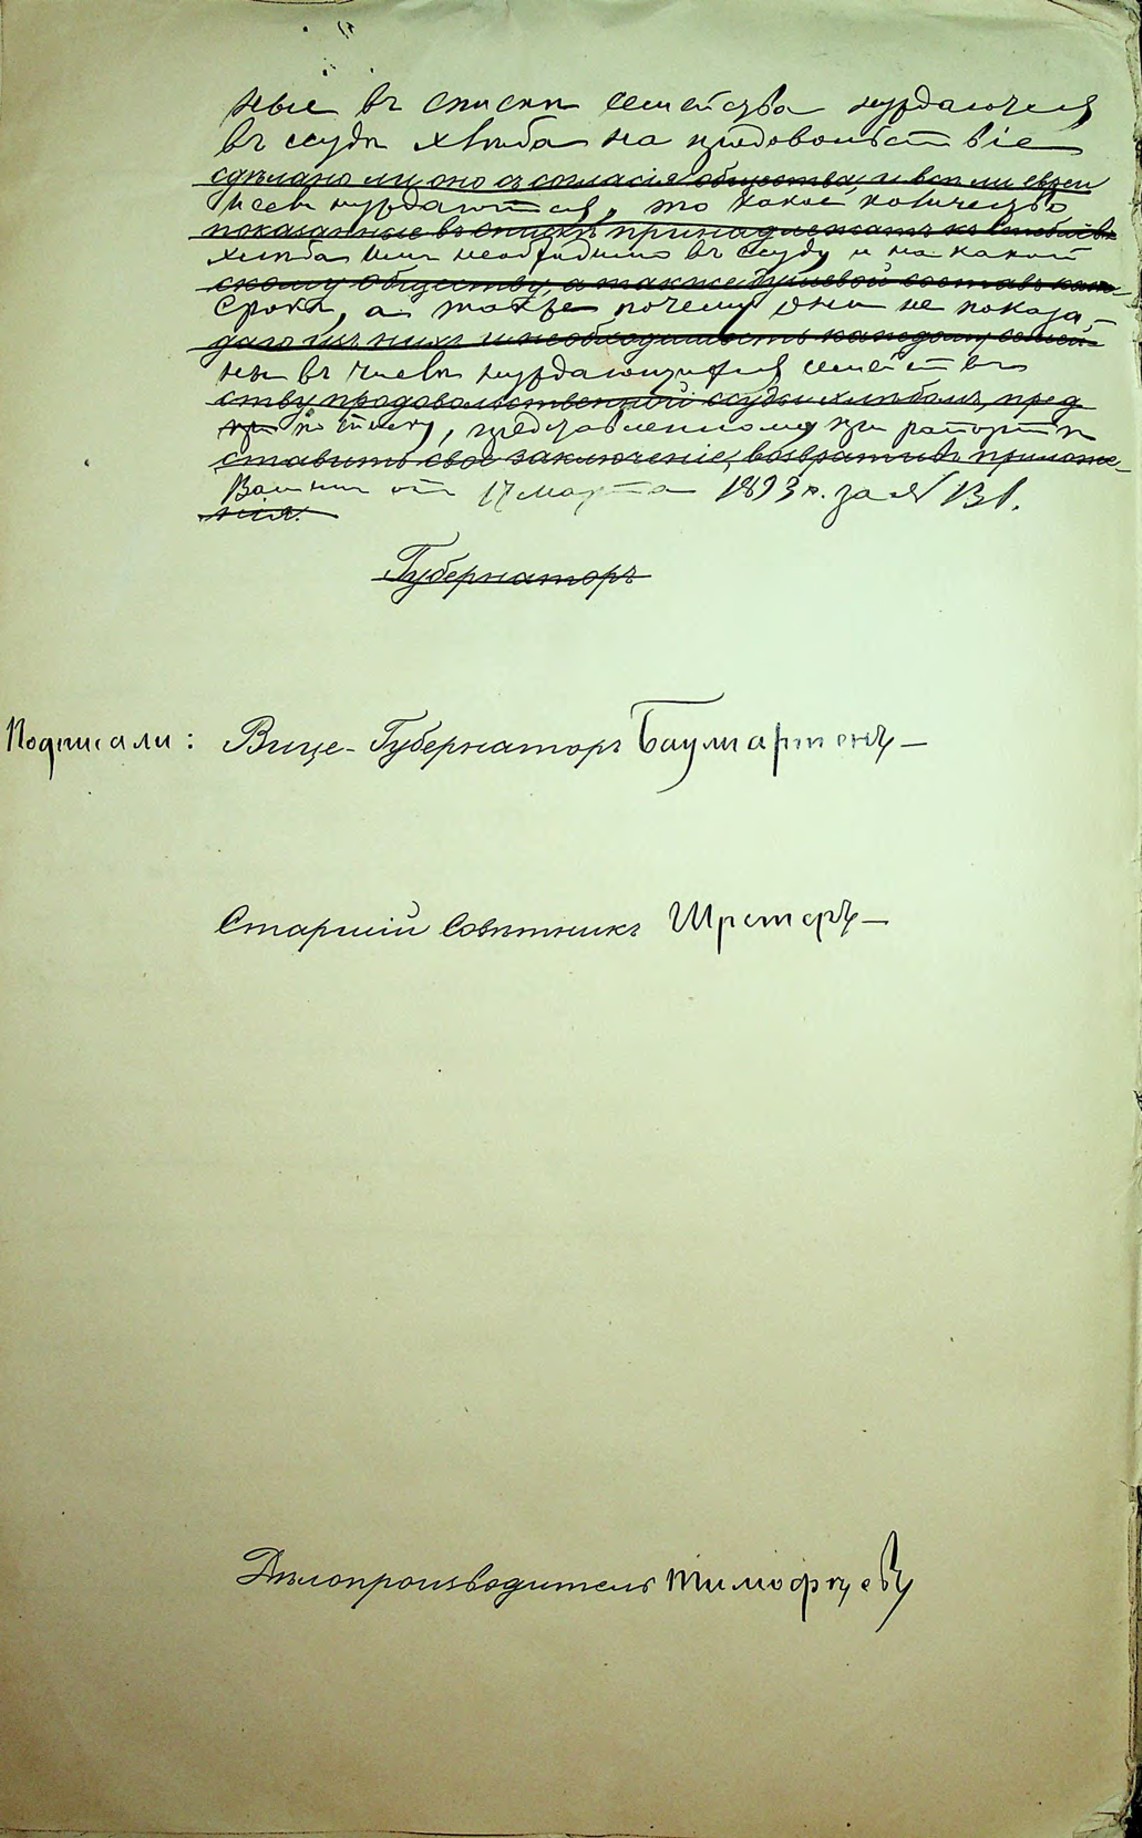 ные въ списки семейства нуждаются
въ ссудѣ хлѣба на продовольствіе
сдѣлано ли оно съ согласія общества, и всѣ ли евреи
и если нуждаются, то какое количество
показанные въ спискѣ принадлежатъ къ
хлѣба имъ необходимо въ ссуду и на какой
скому обществу, а также душевой составъ каж-
срокъ, а также почему они не показа-
даго изъ нихъ и необходимость каждому семей-
ны въ числѣ нуждающихся семействъ
ству продовольственной ссуды хлѣбомъ, пред
по списку, представленному при рапортѣ
ставить свое заключеніе, возвративъ приложе-
Вашемъ отъ 17 марта 1893 г. за №
нія.
Губернаторъ
Подписали: Вице-Губернаторъ Баумгартенъ
Старшій Совѣтникъ Шретеръ
Дѣлопроизводитель Тимофѣевъ